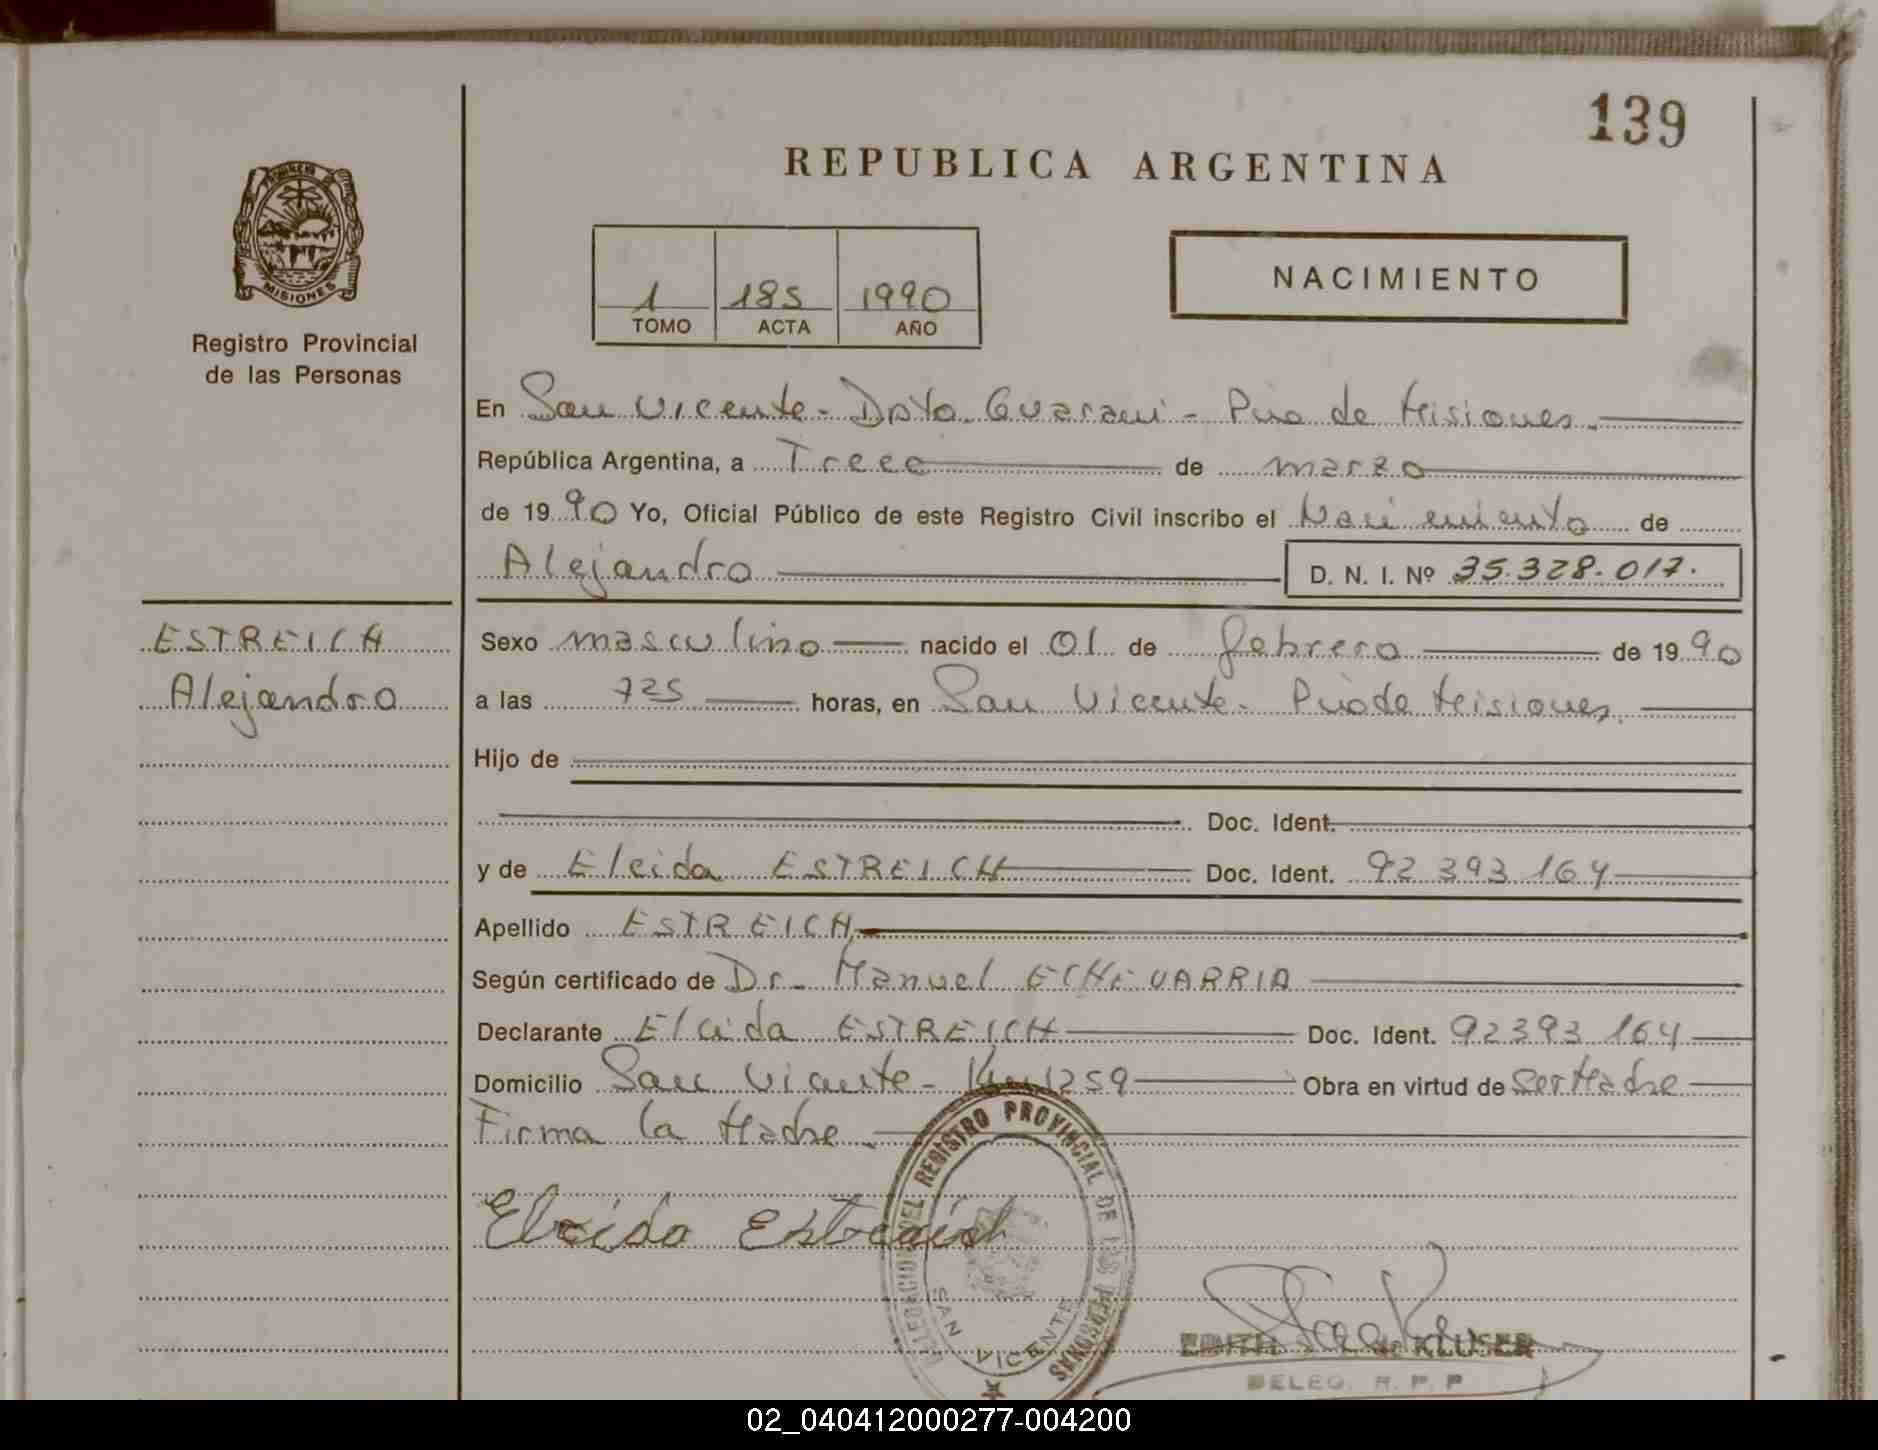 139
REPUBLICA ARGENTINA
MISIONES
Registro Provincial
de las Personas
1 185 1990
TOMO ACTA AÑO
NACIMIENTO
En San Vicente - Dpto. Guarani - Pvia de Misiones.
República Argentina, a Trece de marzo
de 1990 Yo, Oficial Público de este Registro Civil inscribo el Nacimiento de
Alejandro D. N. I. Nº 35.328.017.
ESTREICH
Alejandro
Sexo masculino nacido el 01 de febrero de 1990
a las 725 horas, en San Vicente - Pvia de Misiones.
Hijo de
Doc. Ident.
y de Elcida ESTREICH Doc. Ident. 92 393 164
Apellido ESTREICH
Según certificado de Dr. Manuel ECHEVARRIA
Declarante Elcida ESTREICH Doc. Ident. 92393 164
Domicilio San Vicente - Km 1259 Obra en virtud de ser Madre
Firma la Madre.
Elcida Estreich
DELEGACION DEL REGISTRO PROVINCIAL DE LAS PERSONAS
SAN VICENTE
EDITH de KLUSER
DELEG. R. P. P
02_040412000277-004200